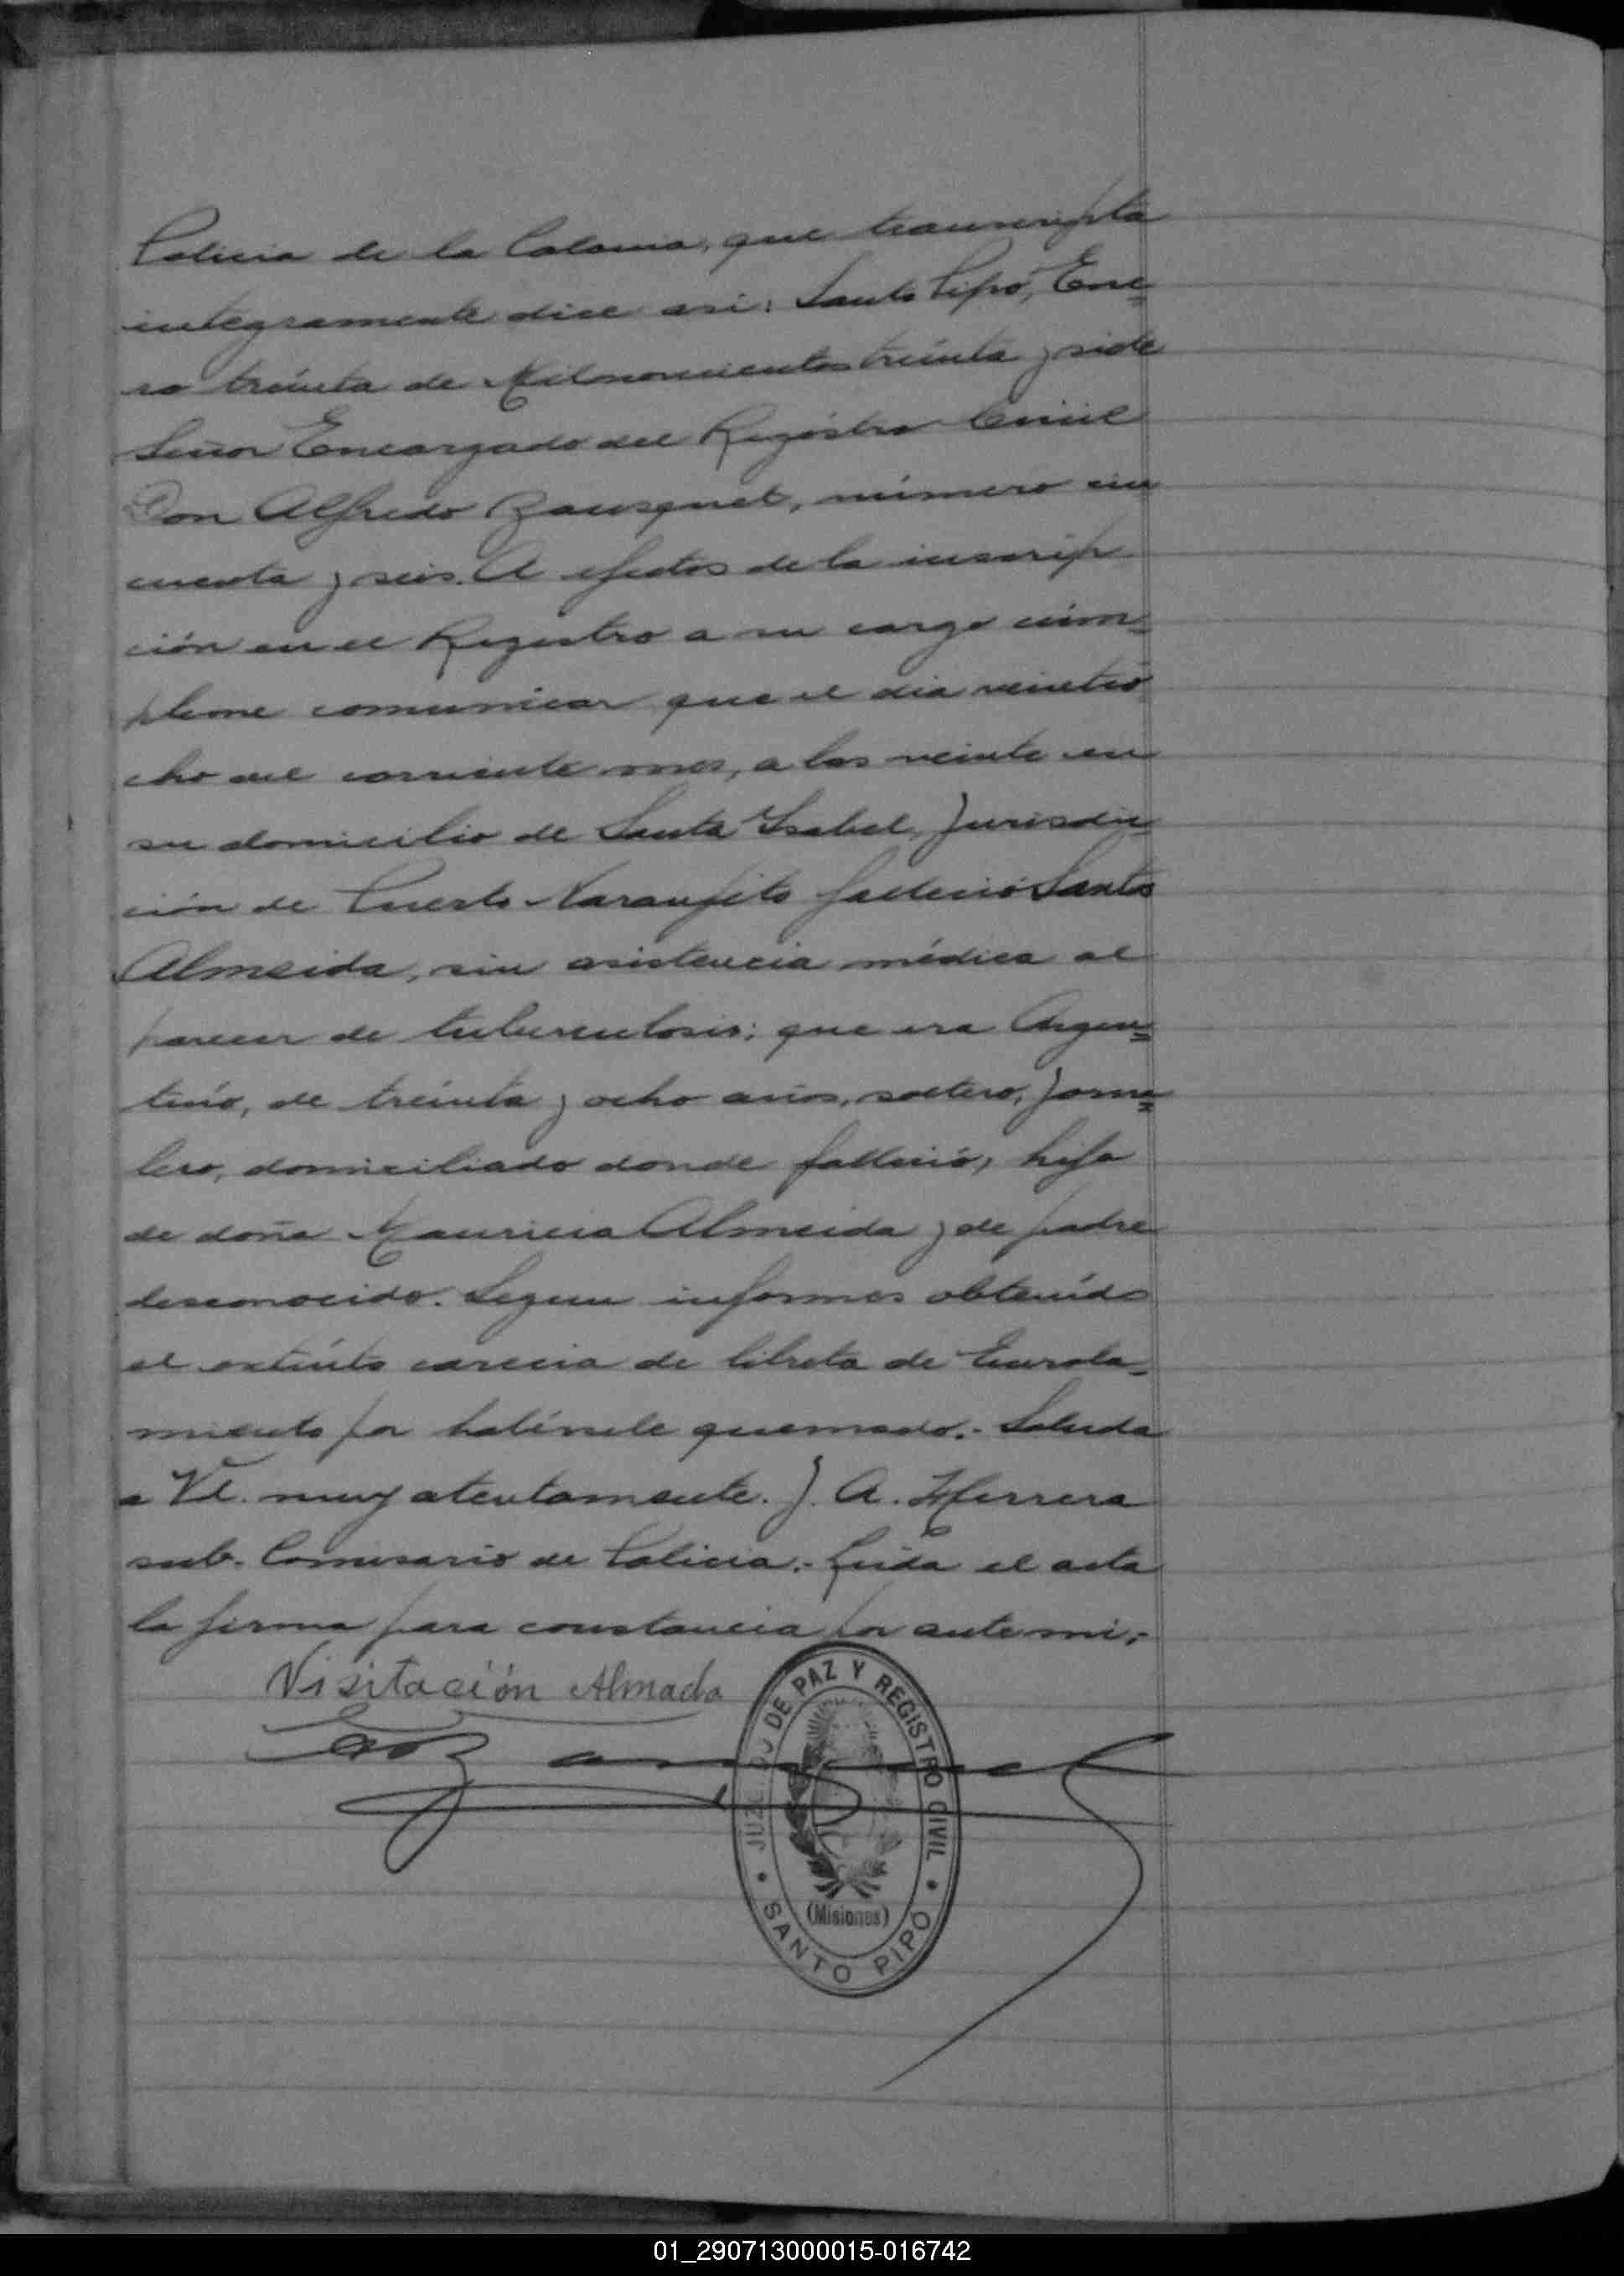 Policia de la Colonia, que transcripta
integramente dice asi: Santo Pipó, Ene-
ro treinta de Milnovecientos treinta y siete
Señor Encargado del Registro Civil
Don Alfredo Bousquet, número cin
cuenta y seis. A efectos de la inscrip
ción en el Registro a su cargo cúm-
pleme comunicar que el dia veintio-
cho del corriente mes, a las veinte en
su domicilio de Santa Ysabel, Jurisdic
ción de Puerto Naranjito falleció Santos
Almeida, sin asistencia médica al
parecer de tuberculosis; que era Argen-
tino, de treinta y ocho años, soltero, Jorna-
lero, domiciliado donde falleció, hijo
de doña Mauricia Almeida y de padre
desconocido. Segun informes obtenido
el extinto carecia de libreta de Enrola-
miento por habérsele quemado.- Saluda
a Vd. muy atentamente. J. A. Herrera
sub-Comisario de Policia.- Leida el acta
la firma para constancia por ante mi;-
Visitación Almada
JUZGADO DE PAZ Y REGISTRO CIVIL
(Misiones)
SANTO PIPO
01_290713000015-016742